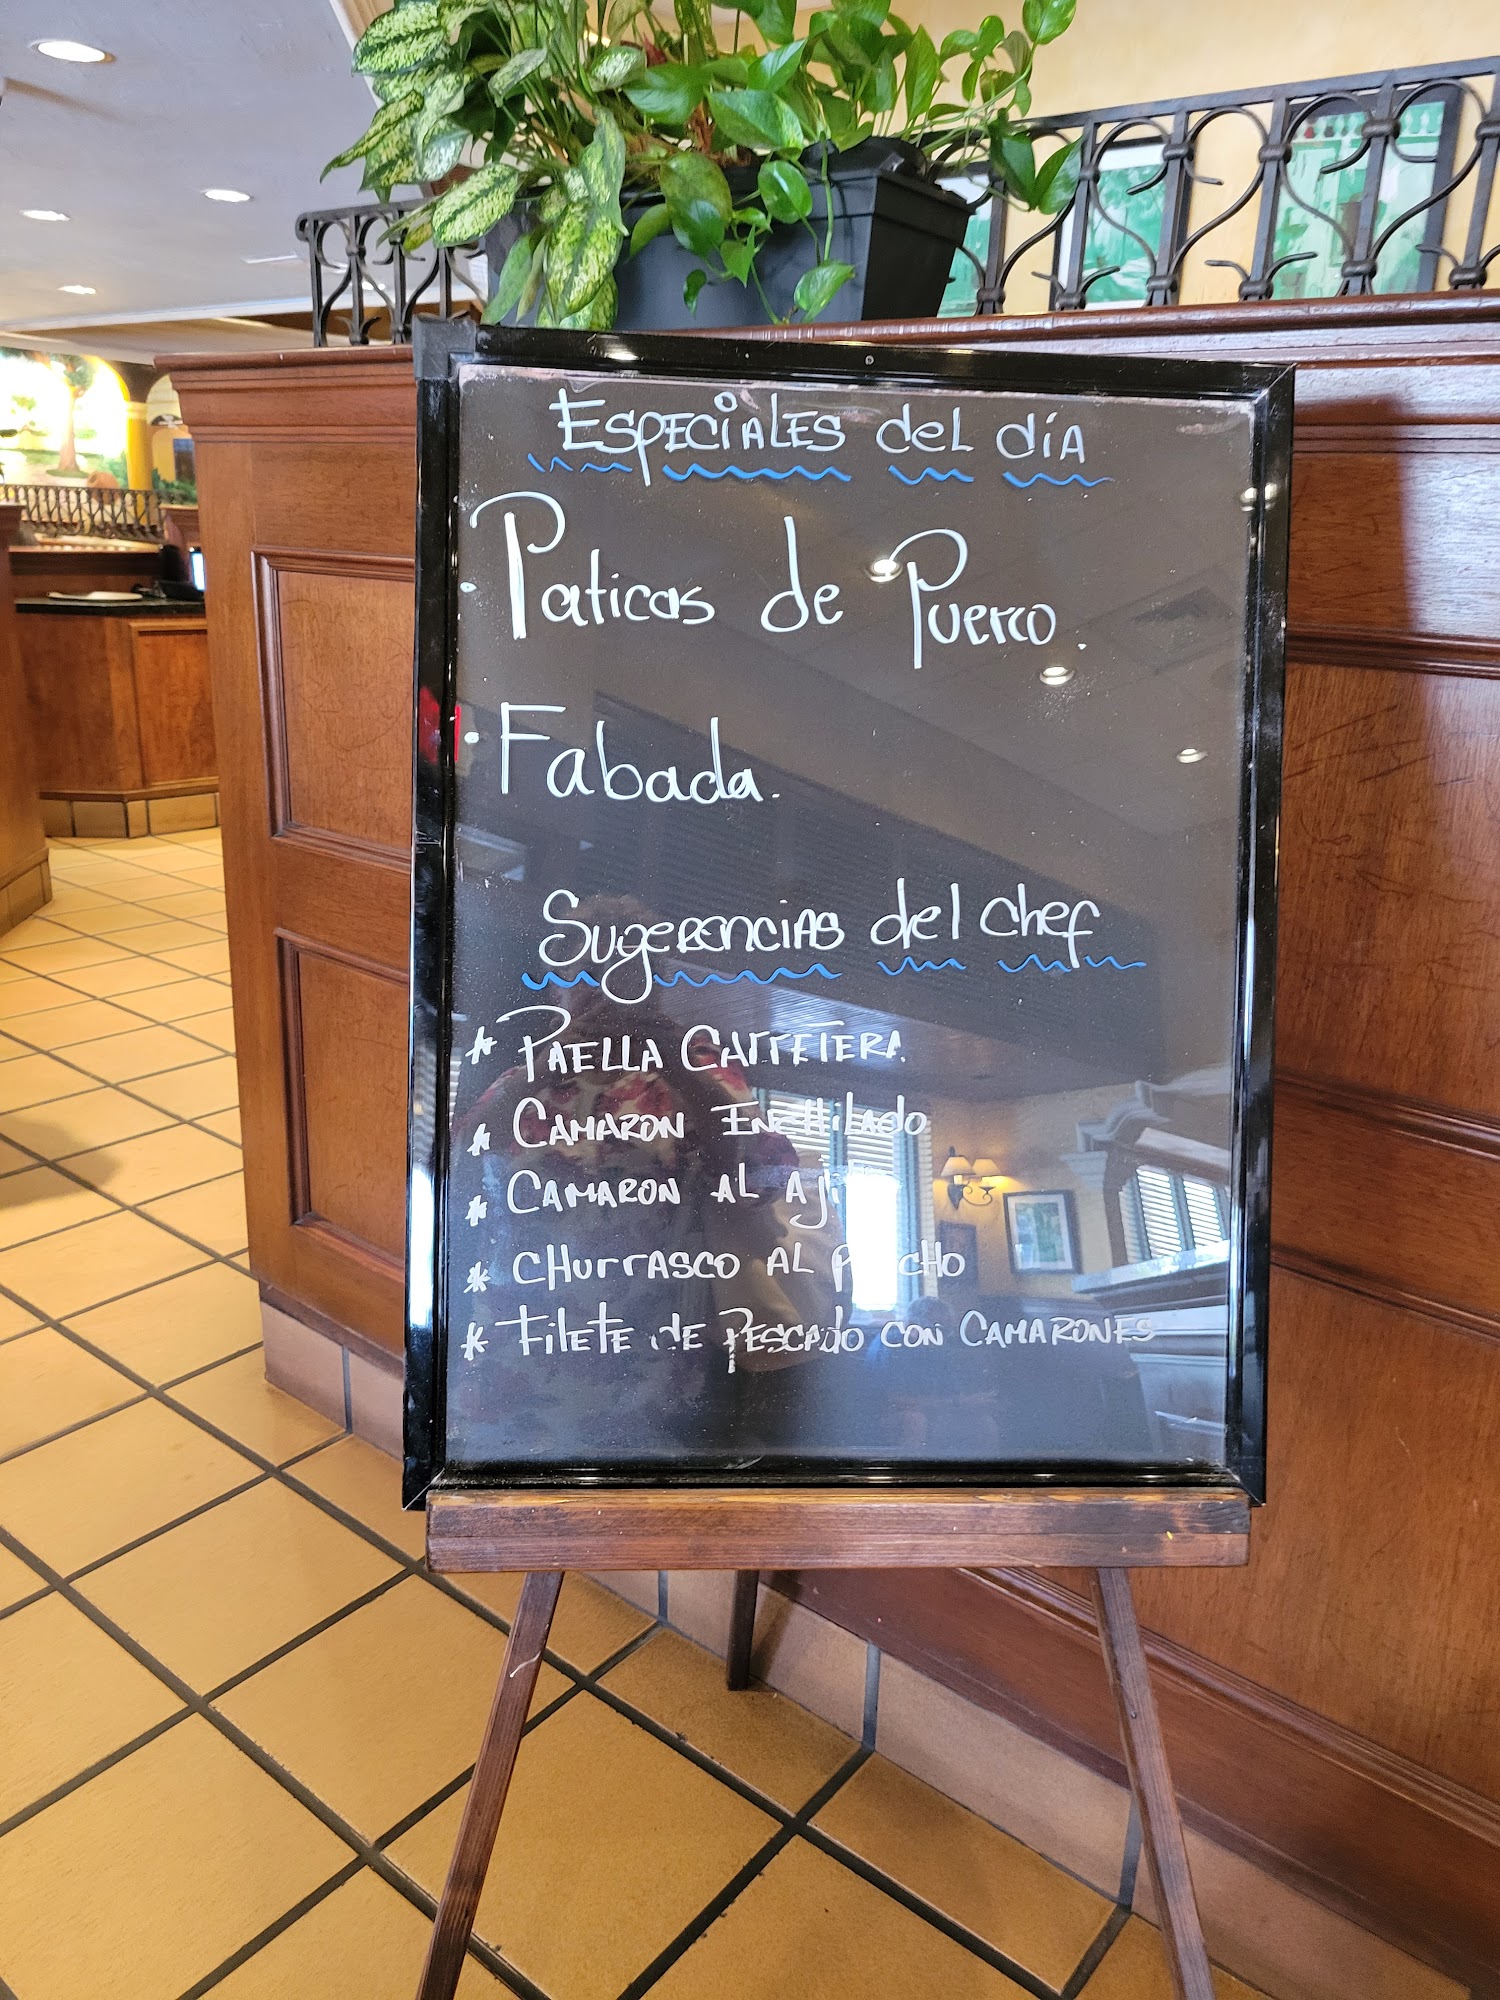 Especiales del día
· Paticas de Puerco.
· Fabada.
Sugerencias del chef
* Paella Carretera
* Camaron Enchilado
* Camaron al
* Churrasco al
* Filete de Pescado con Camarones